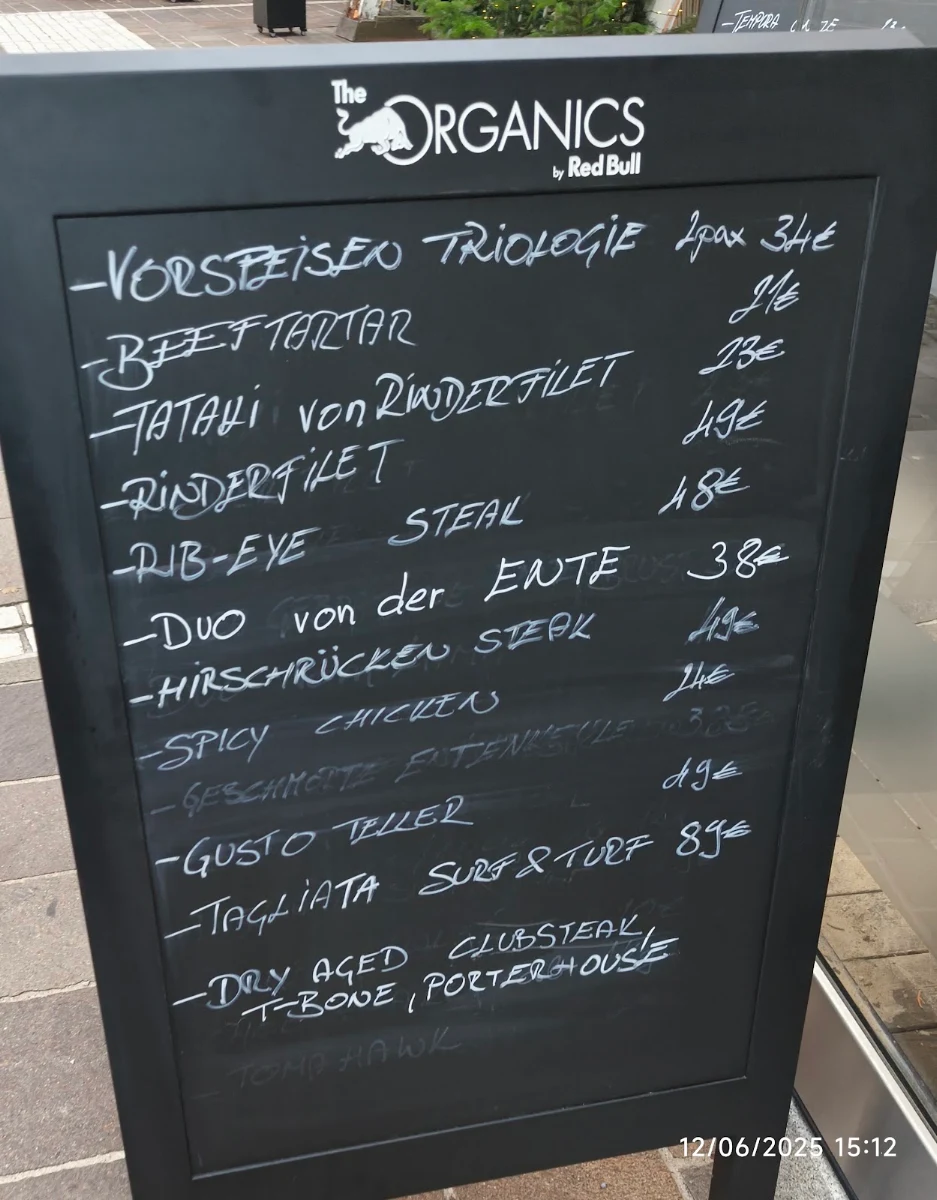 - TEMPURA
The ORGANICS
by Red Bull
- VORSPEISEN TRIOLOGIE 2pax 34€
- BEEFTARTAR 21€
- TATAKI von RINDERFILET 23€
- RINDERFILET 49€
- RIB-EYE STEAK 48€
- DUO von der ENTE 38€
- HIRSCHRÜCKEN STEAK 49€
- SPICY CHICKEN 24€
- GESCHMORTE ENTENKEULE
- GUSTO TELLER 49€
- TAGLIATA SURF & TURF 89€
- DRY AGED CLUBSTEAK,
T-BONE, PORTERHOUSE
- TOMAHAWK
12/06/2025 15:12